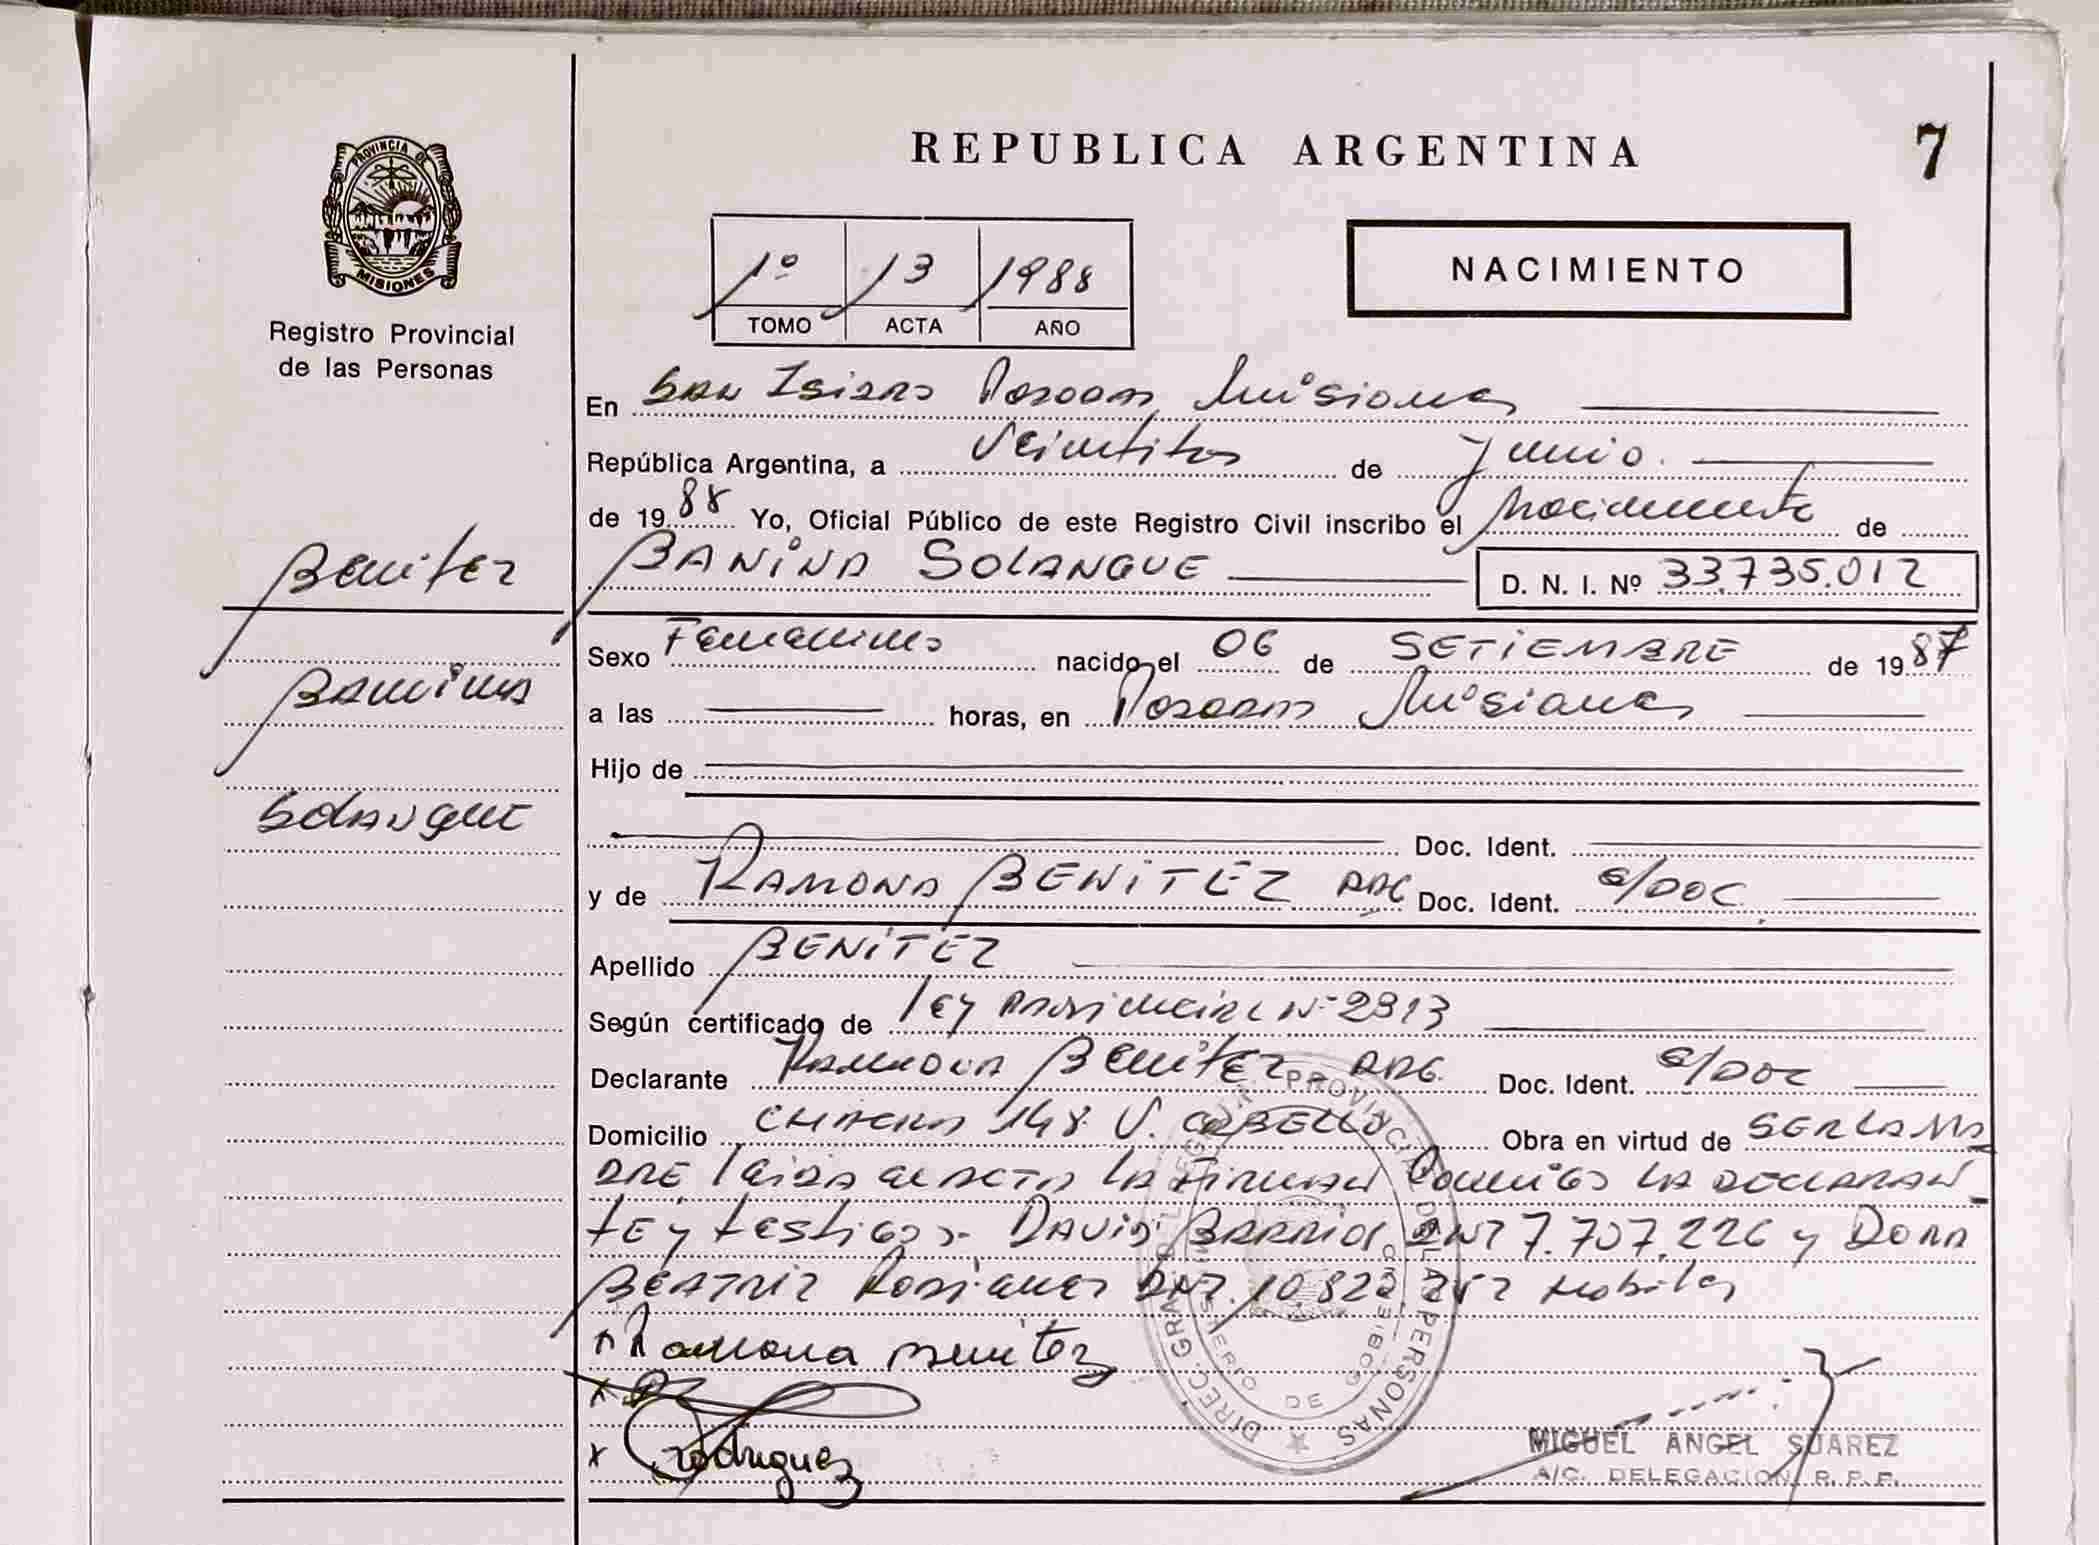 REPUBLICA ARGENTINA
7
PROVINCIA DE
MISIONES
Registro Provincial
de las Personas
1º 13 1988
TOMO ACTA AÑO
NACIMIENTO
En San Isidro Posadas Misiones
República Argentina, a Veintitos de Junio.
de 1988 Yo, Oficial Público de este Registro Civil inscribo el Nacimiento de
BANINA SOLANGUE D. N. I. Nº 33.735.012
Benitez
Banina
Solangue
Sexo Femenino nacido el 06 de SETIEMBRE de 1987
a las horas, en Posadas Misiones
Hijo de
Doc. Ident.
y de RAMONA BENITEZ ARG Doc. Ident. C/DOC.
Apellido BENITEZ
Según certificado de Ley Provincial Nº 2313
Declarante Ramona Benitez ARG. Doc. Ident. C/DOC
Domicilio CHACRA 148 V. CABELLO Obra en virtud de SER LA MA
DRE leida el ACTA LA Firman Conmigo LA DECLARAN
TE y testigos- DAVID BARRIOS DNI 7.707.226 y DORA
BEATRIZ Rodriguez DNI. 10 822 252 Habiles
x Ramona Benitez
x
x Rodriguez
DIREC. GRAL. DEL REG. PROVINCIAL DE LAS PERSONAS
MINISTERIO DE GOBIERNO
MIGUEL ANGEL SUAREZ
A/C. DELEGACION R. P. P.